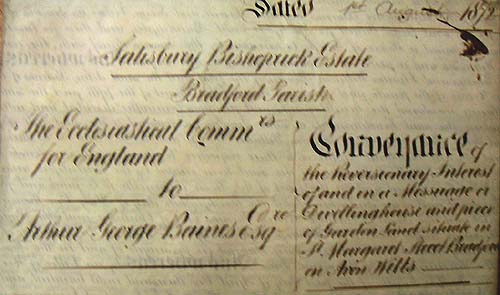 Dated 1st August 187
Salisbury Bishoprick Estate
Bradford Parish
The Ecclesiastical Commrs
for England
to
Arthur George Baines Esqre
Conveyance of
the Reversionary Interest
of and in a Messuage or
Dwellinghouse and piece
of Garden Land situate in
St. Margaret Street Bradford
on Avon Wilts